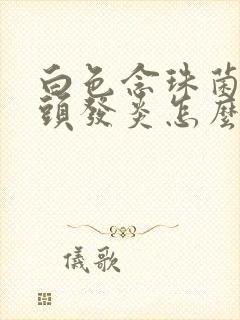 白色念珠菌
頭發炎怎麼
儀歌